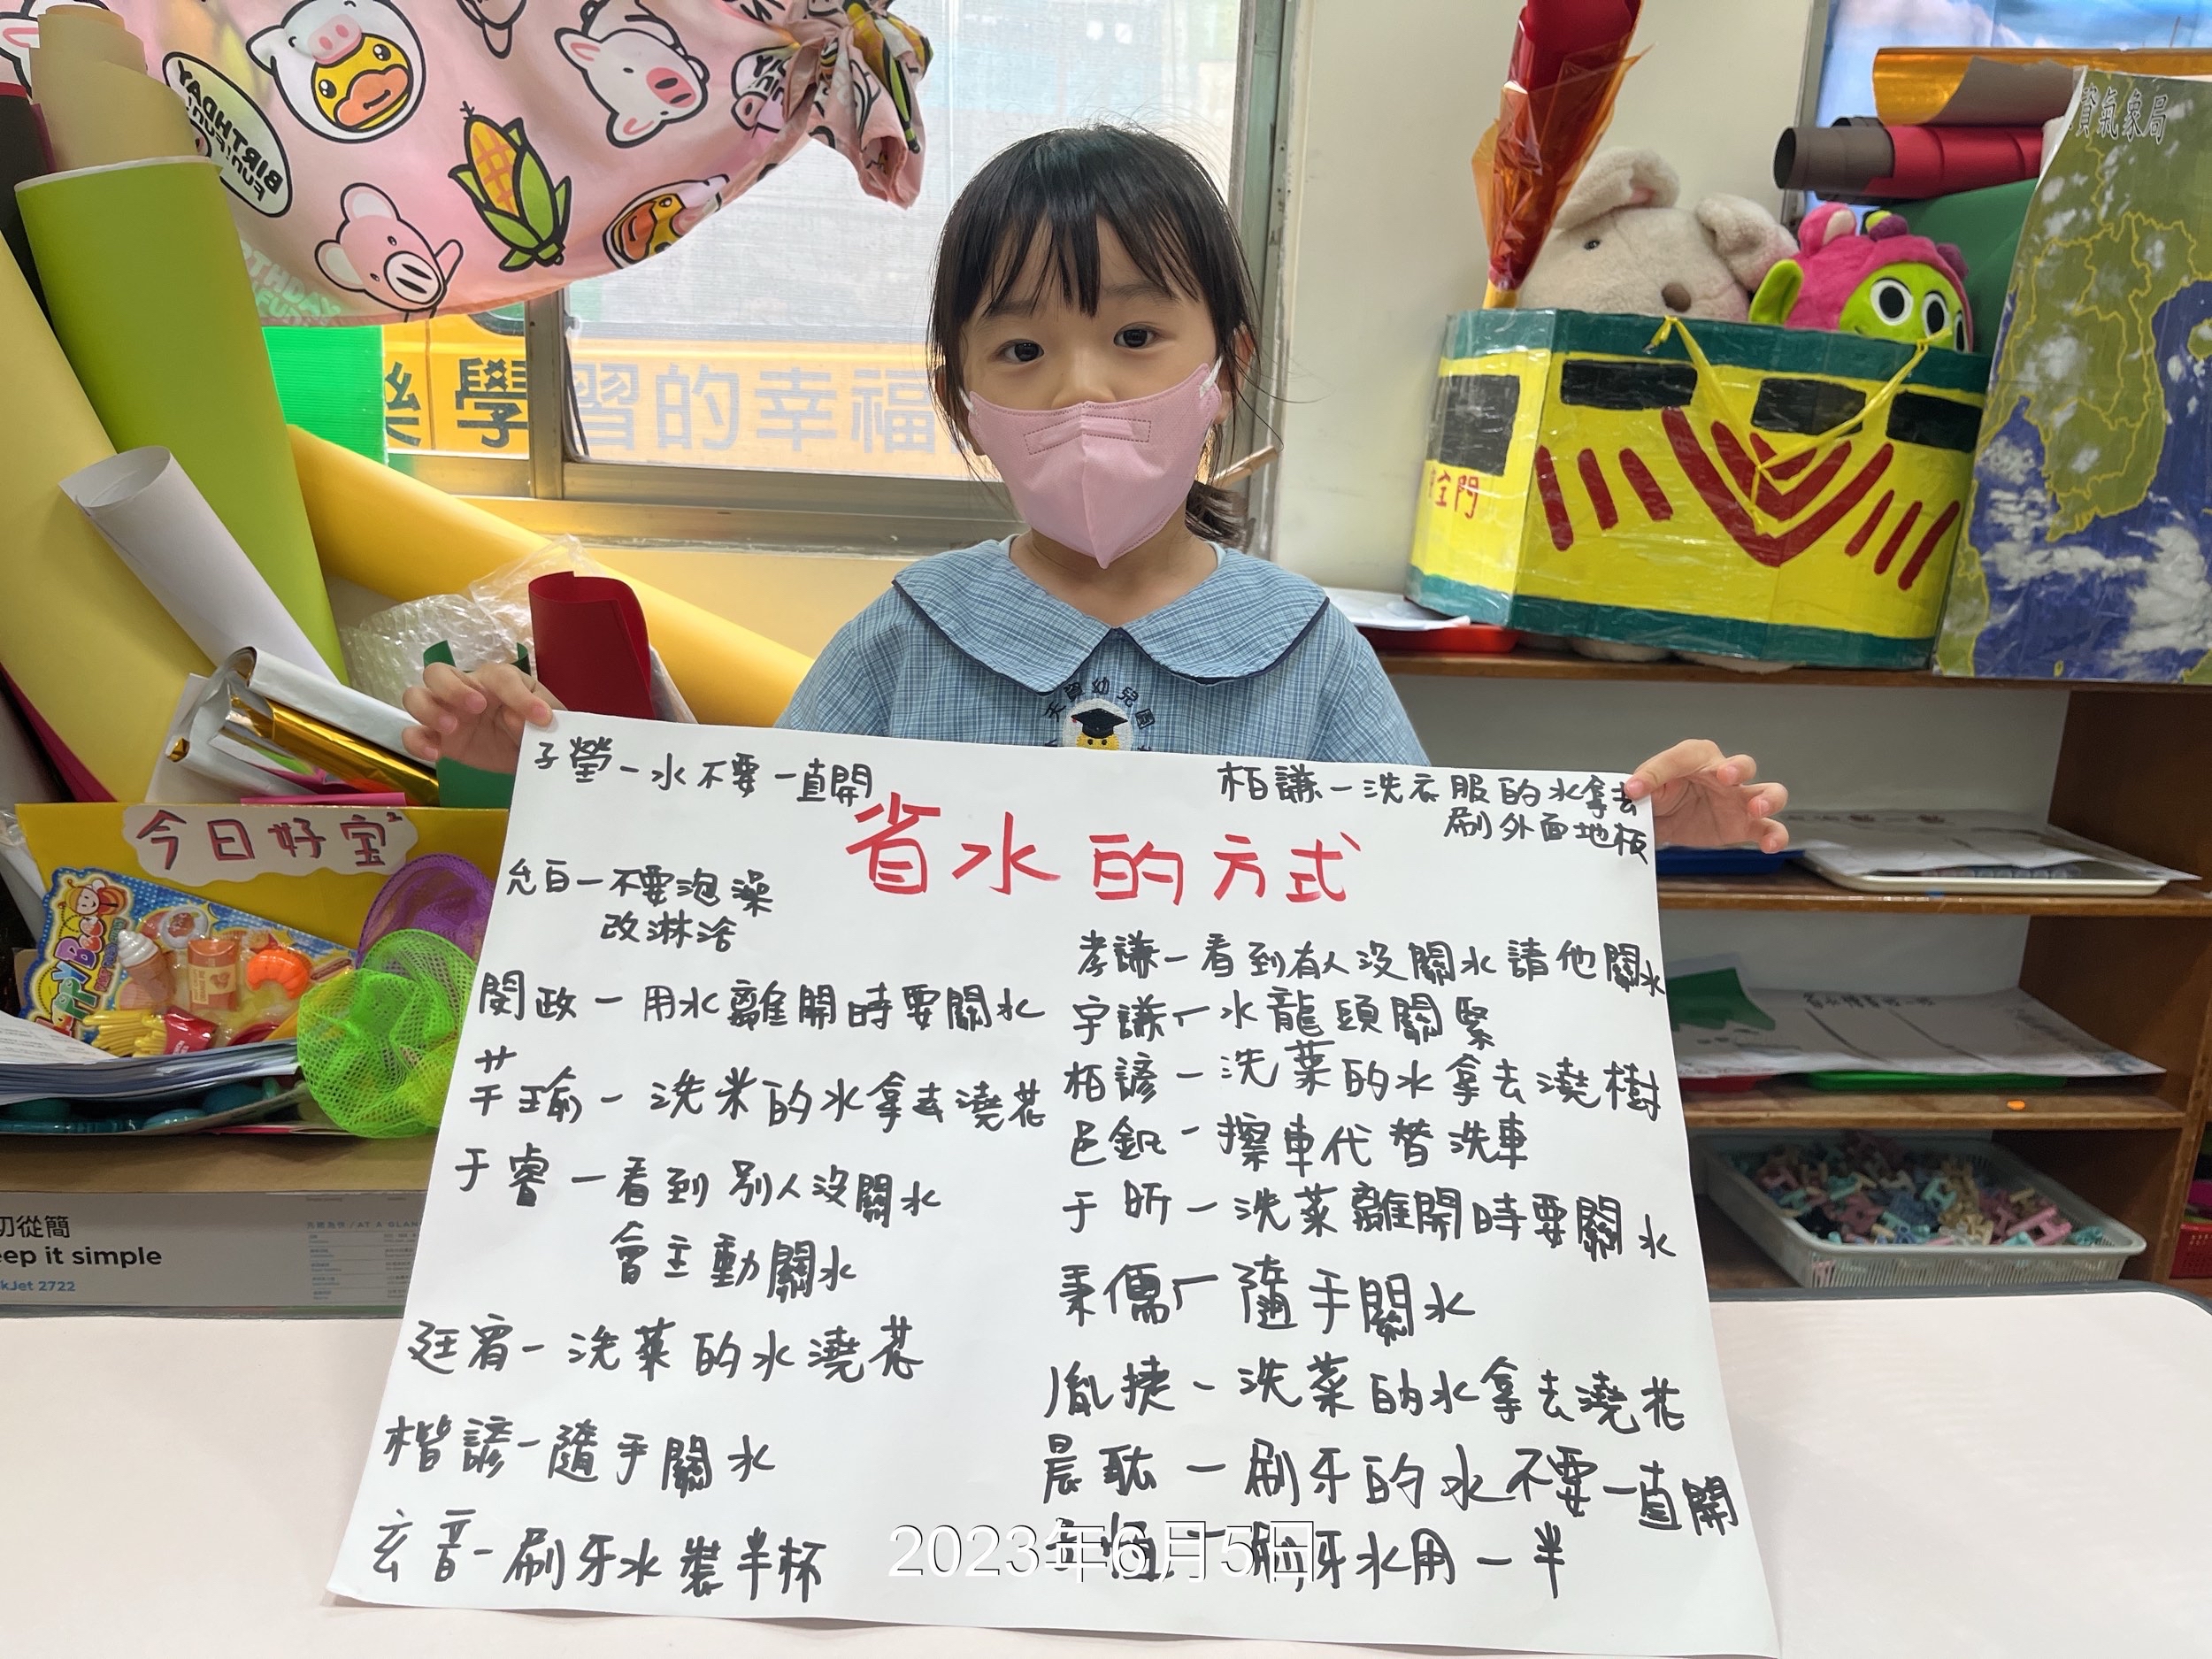 BIRTHDAY
FUN! FUN!
樂學習的幸福
資氣象局
全門
幼兒園
子瑩-水不要一直開
柏謙-洗衣服的水拿去
刷外面地板
省水的方式
允白-不要泡澡
改淋浴
閔政-用水離開時要關水
芊瑜-洗米的水拿去澆花
于睿-看到別人沒關水
會主動關水
廷宥-洗菜的水澆花
楷諺-隨手關水
玄音-刷牙水裝半杯
孝謙-看到有人沒關水請他關水
宇謙-水龍頭關緊
栢諺-洗菜的水拿去澆樹
邑釩-擦車代替洗車
于昕-洗菜離開時要關水
秉儒-隨手關水
胤捷-洗菜的水拿去澆花
晨耘-刷牙的水不要一直開
刷牙水用一半
2023年6月5日
今日好宝
HAPPY Bee
切從簡
eep it simple
kJet 2722
AT A GLAN